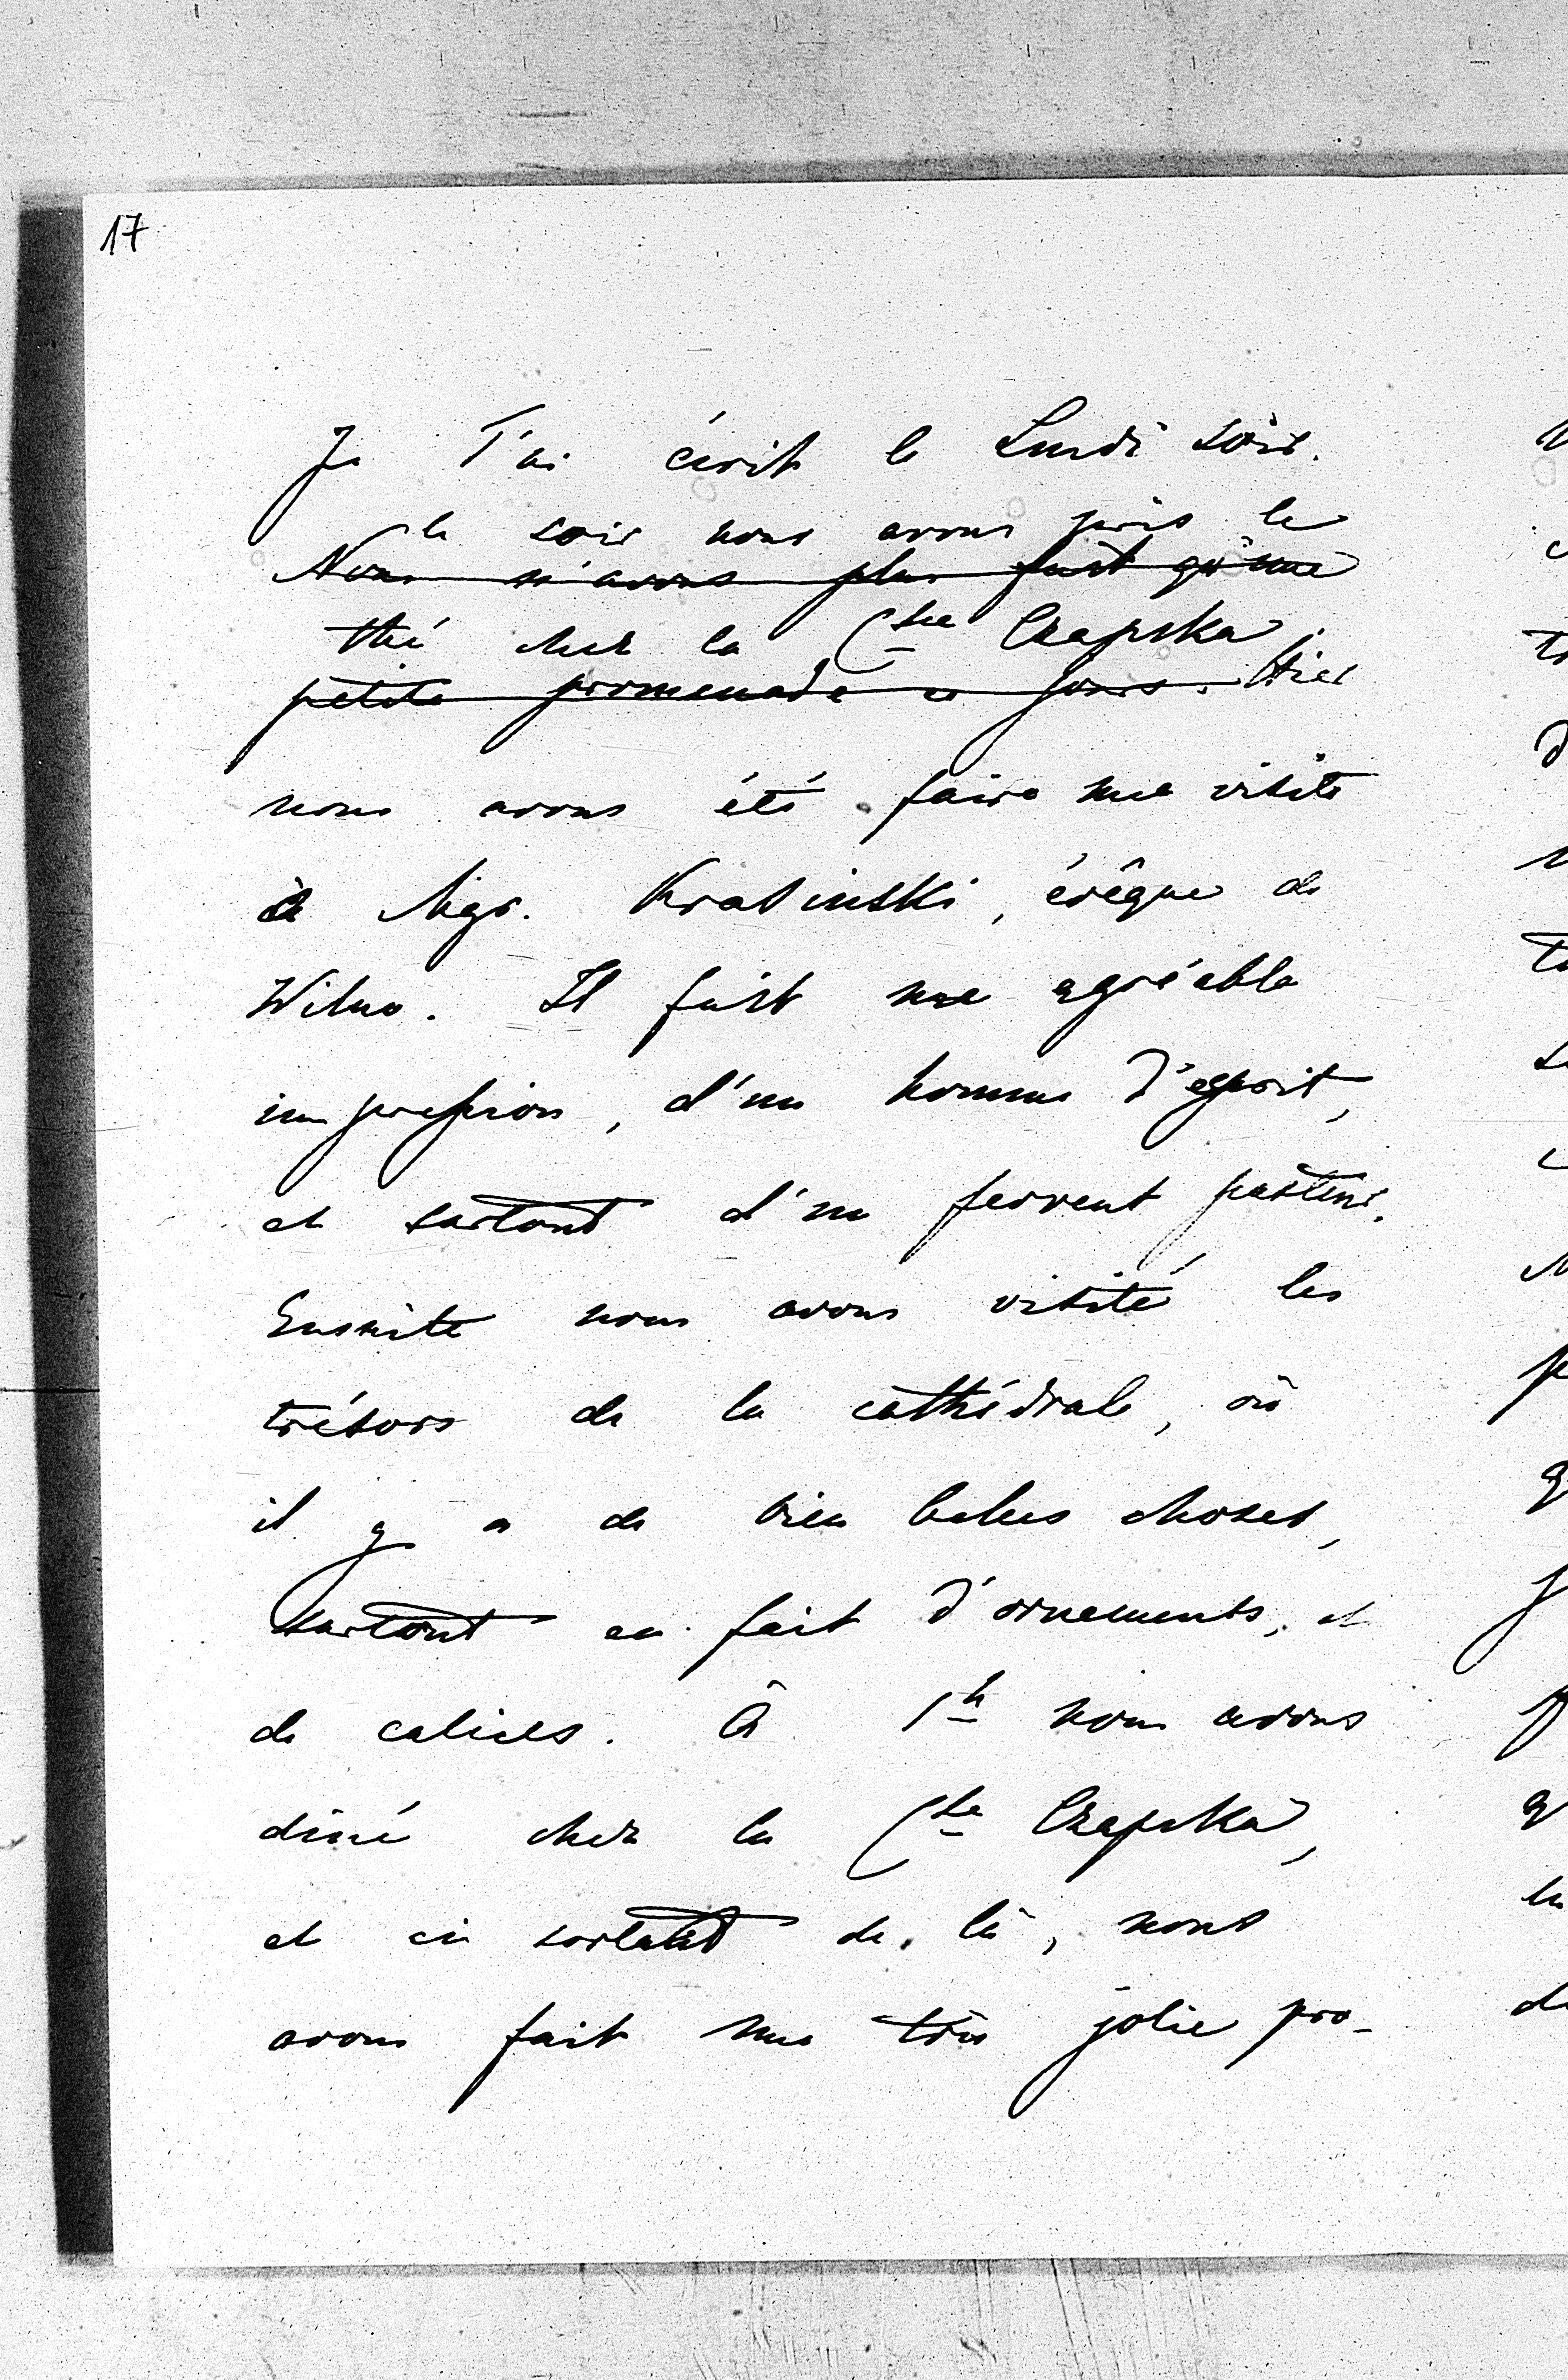 17
Je T'ai écrit le Lundi soir.
le soir nous avons pris le
Nous n'avons plus fait qu'une
thé chez la Ctsse Czapska;
petite promenade ce jour. Hier
nous avons été faire une visite
à Mgr. Krasinski, évêque de
Wilno. Il fait une agréable
impression, d'un homme d'esprit,
et surtout d'un fervent pasteur.
Ensuite nous avons visité les
trésors de la cathédrale, où
il y a de bien belles choses,
surtout en fait d'ornements, et
de calices. À 1h nous avons
diné chez la Cte Czapska,
et en sortant de là, nous
avons fait une très jolie pro-